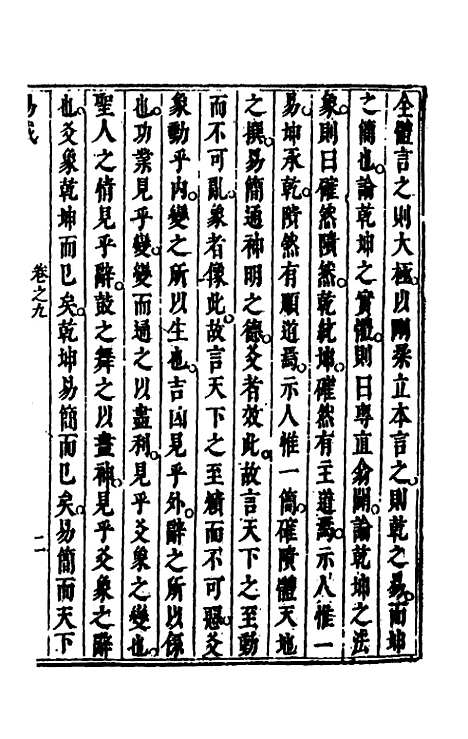 全體言之則大極以剛柔立本言之則乾之易而坤
之簡也論乾坤之實體則曰專直翕闢論乾坤之法
象則曰確然隤然乾統坤確然有主道焉示人惟一
易坤承乾隤然有順道焉示人惟一簡確隤體天地
之撰易簡通神明之德爻者效此故言天下之至動
而不可亂象者像此故言天下之至賾而不可惡爻
象動乎內變之所以生也吉凶見乎外辭之所以係
也功業見乎變變而通之以盡利見乎爻象之變也
聖人之情見乎辭鼓之舞之以盡神見乎爻象之辭
也爻象乾坤而已矣乾坤易簡而已矣易簡而天下
卷之九
二